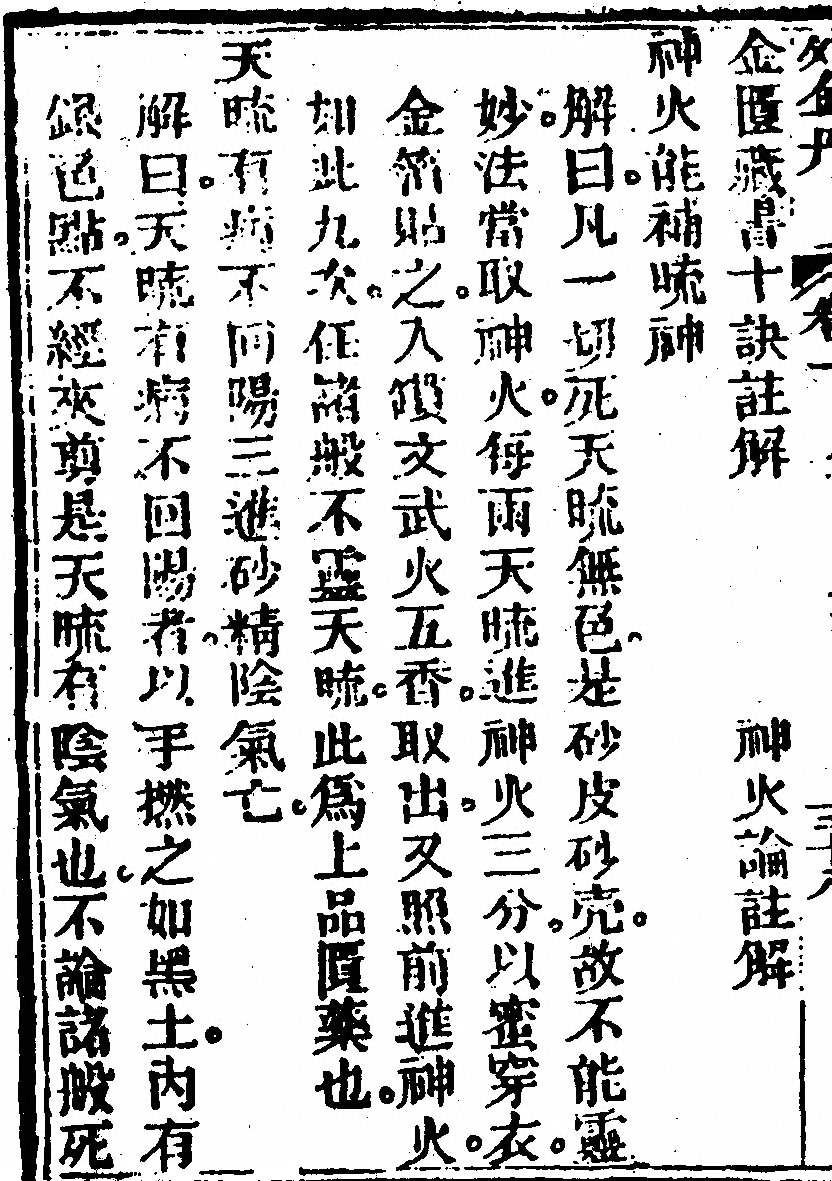 外金丹 卷一 三十八
金匱藏書十訣註解 神火論註解
神火能補硫神
解曰凡一切死天硫無色是砂皮砂壳故不能靈
妙法當取神火每兩天硫進神火三分以蜜穿衣
金箔貼之入鎖文武火五香取出又照前進神火
如此九次任諸般不靈天硫此爲上品匱藥也
天硫有病不回陽三進砂精陰氣亡
解曰天硫有病不回陽者以手撚之如黑土內有
銀色點不經夾剪是天硫有陰氣也不論諸般死